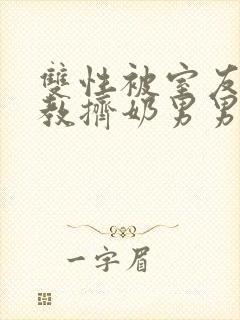 雙性被室友
教擠奶男男
一字眉